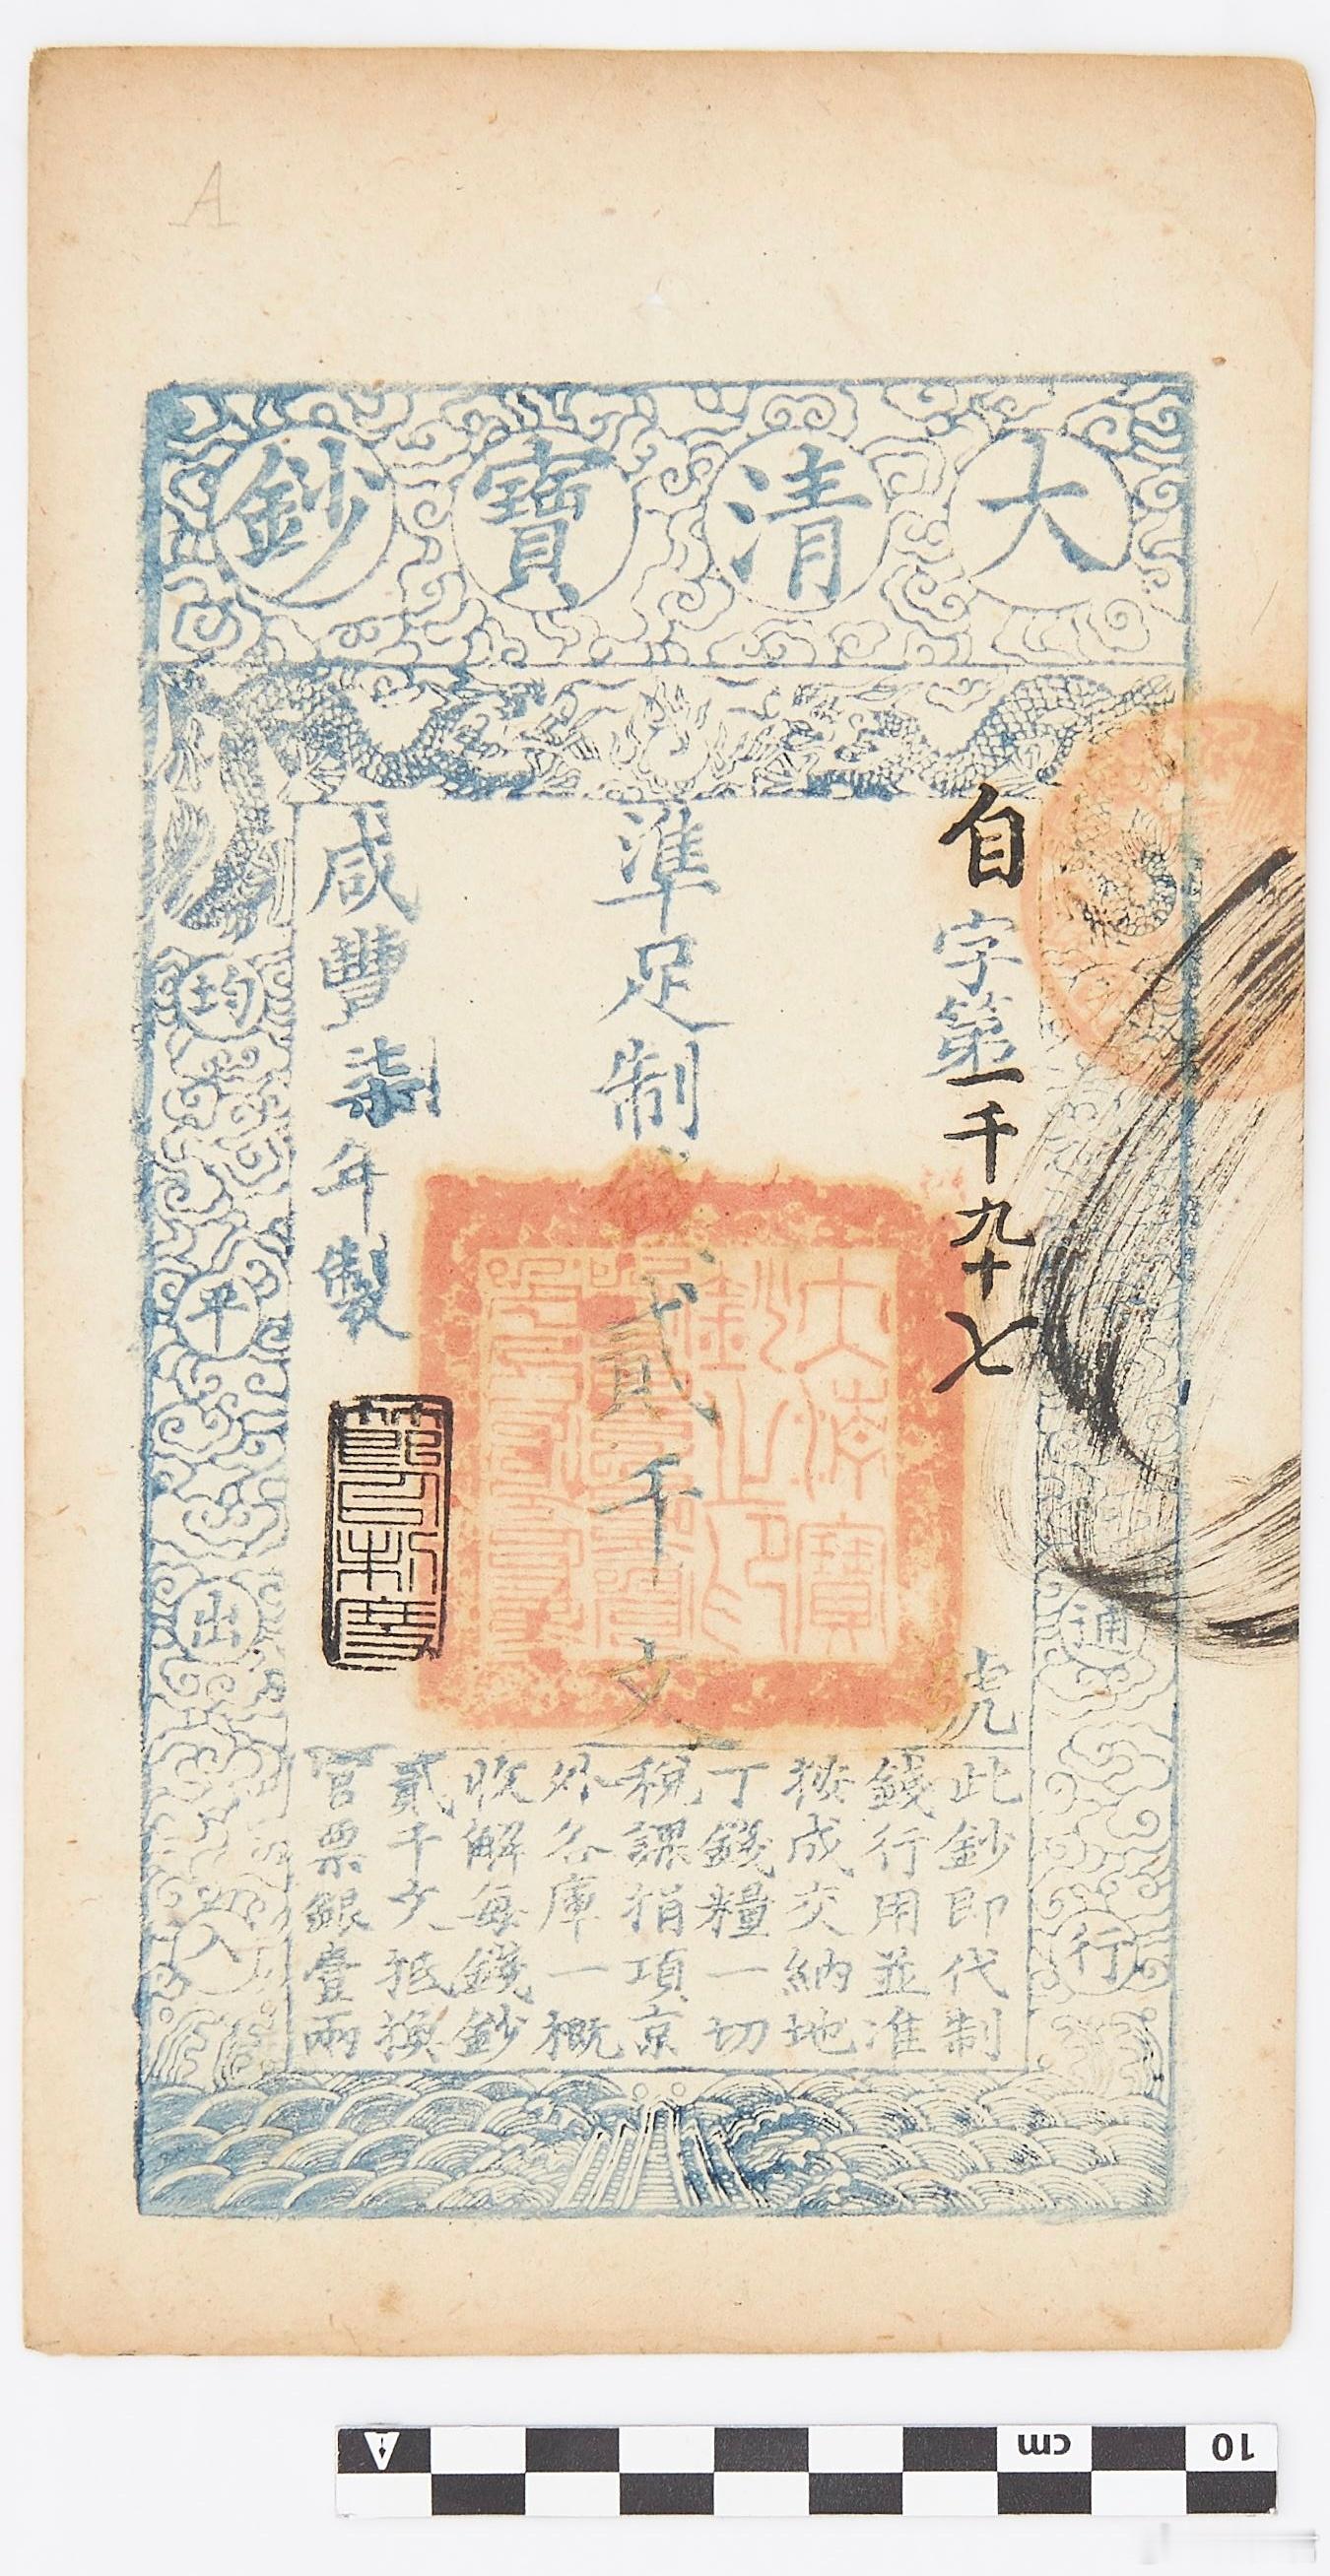 大清寶鈔
自字第一千九十七號
準足制錢貳千文
咸豐柒年製
節以制度
大清寶鈔之印
通行
均平出入
此鈔即代制
錢行用並准
按成交納地
丁錢糧一切
稅課捐項京
外各庫一概
收解每錢鈔
貳千文抵換
官票銀壹兩
A
cm
10